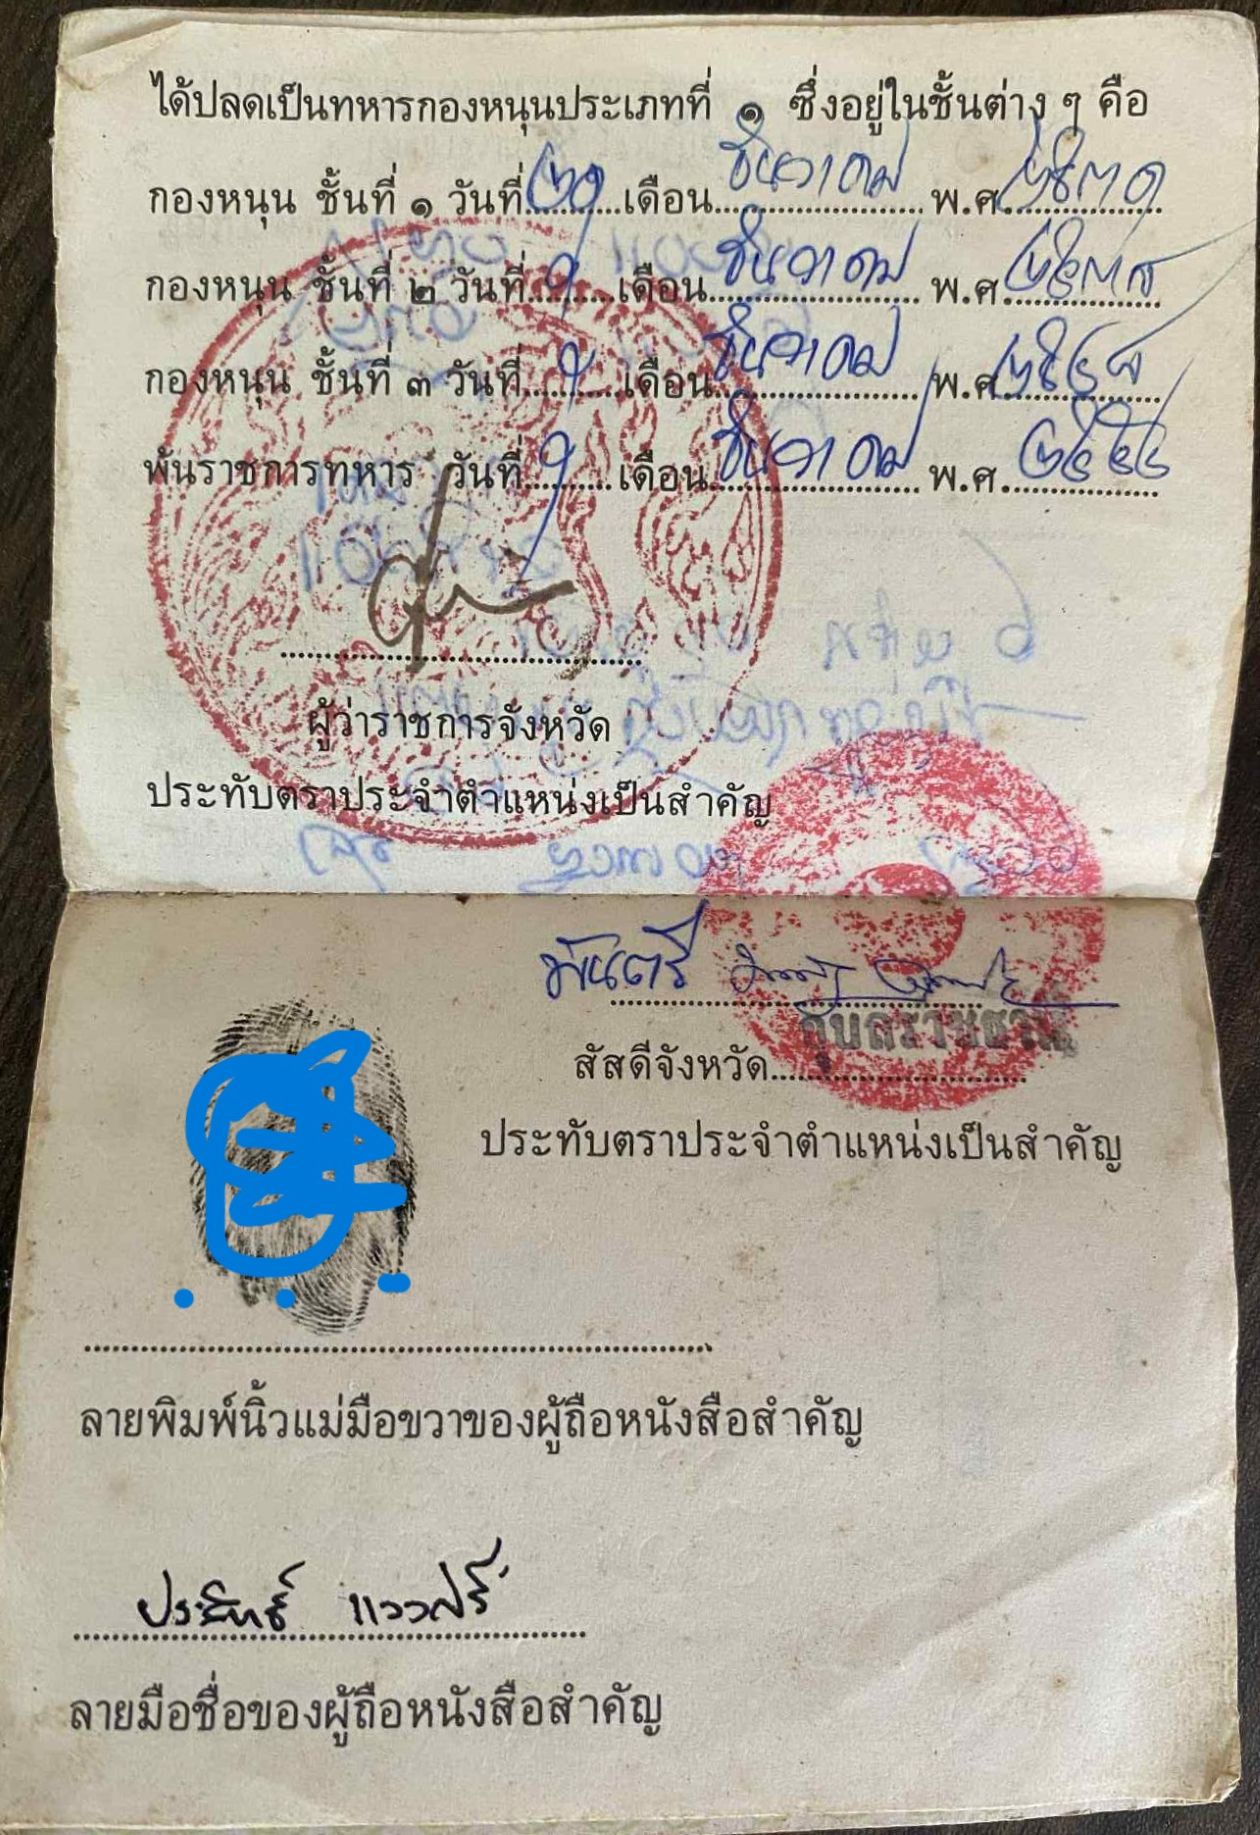 ได้ปลดเป็นทหารกองหนุนประเภทที่ ๑ ซึ่งอยู่ในชั้นต่าง ๆ คือ
กองหนุน ชั้นที่ ๑ วันที่ ๒๑ เดือน ธันวาคม พ.ศ.
กองหนุน ชั้นที่ ๒ วันที่ ๑ เดือน ธันวาคม พ.ศ.
กองหนุน ชั้นที่ ๓ วันที่ ๑ เดือน ธันวาคม พ.ศ.
พ้นราชการทหาร วันที่ ๑ เดือน ธันวาคม พ.ศ.
ผู้ว่าราชการจังหวัด
ประทับตราประจำตำแหน่งเป็นสำคัญ
พันตรี
อุบลราชธานี
สัสดีจังหวัด
ประทับตราประจำตำแหน่งเป็นสำคัญ
ลายพิมพ์นิ้วแม่มือขวาของผู้ถือหนังสือสำคัญ
ประสิทธิ์ แววศรี
ลายมือชื่อของผู้ถือหนังสือสำคัญ